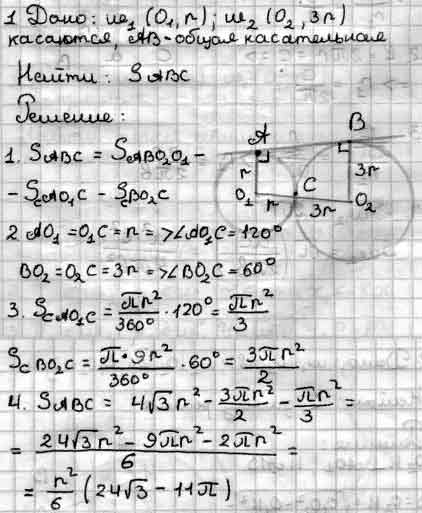 1 Дано: ω₁ (O₁, r); ω₂ (O₂, 3r)
касаются, AB-общая касательная
Найти: S ABC
Решение:
1. S ABC = S ABO₂O₁ -
- S cAO₁C - S cBO₂C
2 AO₁ = O₁C = r => ∠AO₁C = 120°
BO₂ = O₂C = 3r => ∠BO₂C = 60°
3. S cAO₁C = πr²/360° · 120° = πr²/3
S cBO₂C = π·9r²/360° · 60° = 3πr²/2
4. S ABC = 4√3 r² - 3πr²/2 - πr²/3 =
= 24√3 r² - 9πr² - 2πr²/6 =
= r²/6 (24√3 - 11π)
A
B
r
3r
C
O₁
r
3r
O₂